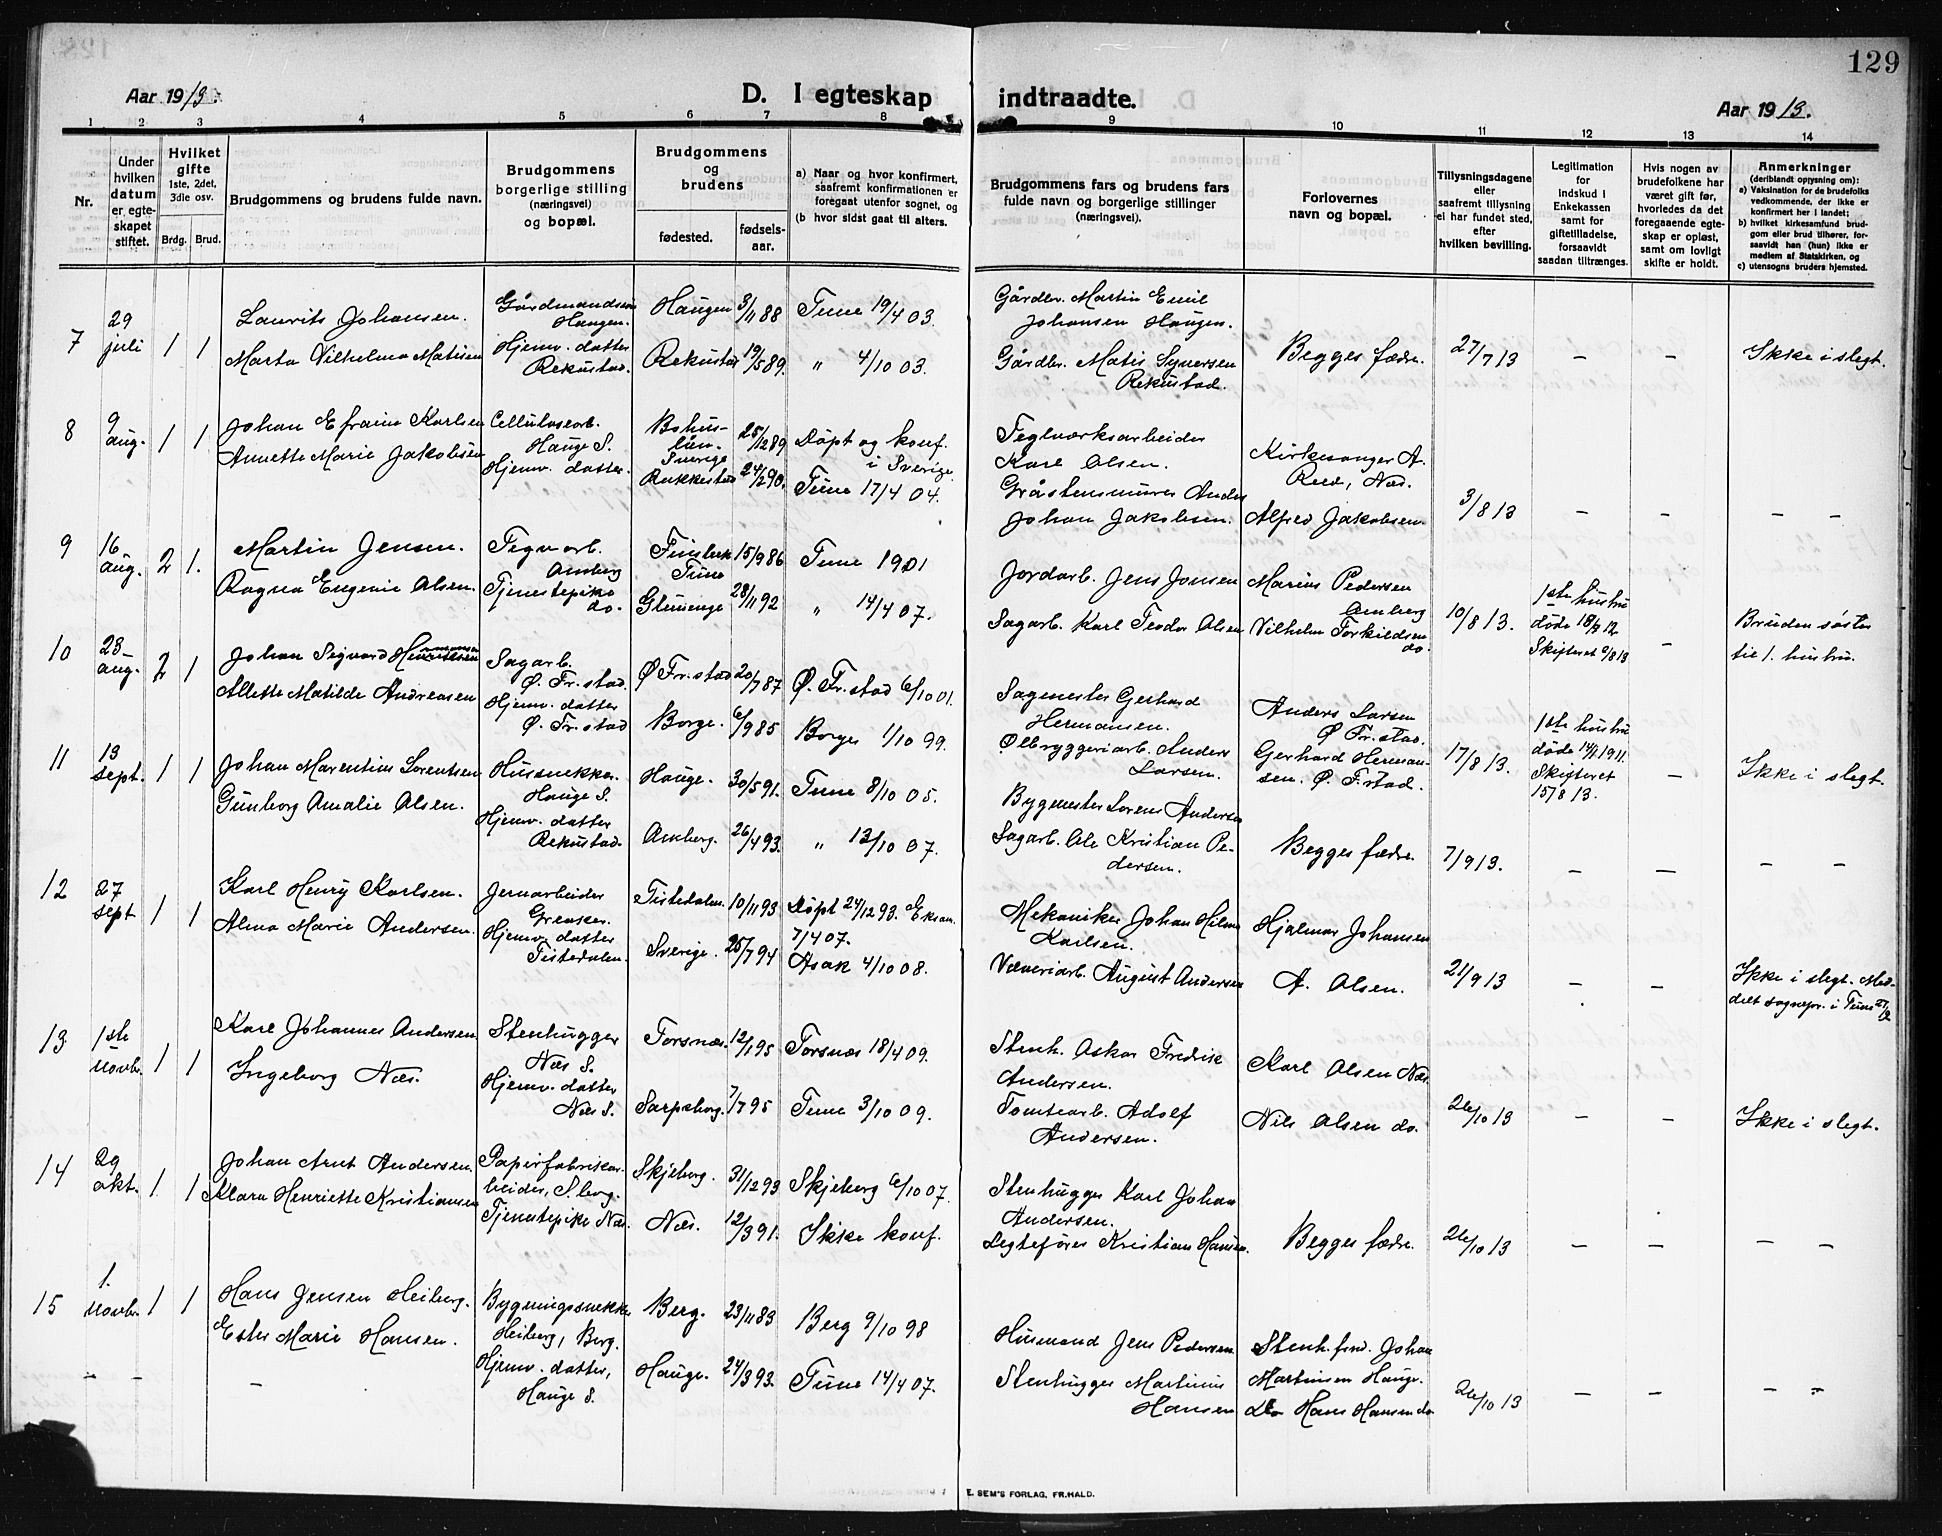 129
Aar 1913.
D. I egteskap
indtraadte.
Aar 1913.
1 2 3 4 5 6 7 8 9 10 11 12 13 14
Nr.
Under hvilken datum er egteskapet stiftet.
Hvilket gifte 1ste, 2det, 3die osv.
Brdg. Brud.
Brudgommens og brudens fulde navn.
Brudgommens borgerlige stilling (næringsvei) og bopæl.
Brudgommens og brudens
fødested.
fødselsaar.
a) Naar og hvor konfirmert, saafremt konfirmationen er foregaat utenfor sognet, og
(b hvor sidst gaat til alters.
Brudgommens fars og brudens fars fulde navn og borgerlige stillinger (næringsvei).
Forlovernes navn og bopæl.
Tillysningsdagene eller saafremt tillysning ei har fundet sted, efter hvilken bevilling.
Legitimation for indskud i Enkekassen samt for giftetilladelse, forsaavidt saadan tiltrænges.
Hvis nogen av brudefolkene har været gift før, hvorledes da det foregaaende egteskap er opløst, samt om lovligt skifte er holdt.
Anmerkninger
(deriblandt opjysning om):
a) Vaksination for de brudefolks vedkommende, der ikke er konfirmert her i landet;
b) hvilket kirkesamfund brudgom eller brud tilhører, forsaavidt han (hun) ikke er medlem af Statskirken, og
c) utensogns bruders hjemsted.
7 29 juli 1 1
Laurits Johansen.
Marta Vilhelmine Matisen
Gårdmandssøn Haugen.
Hjemv. datter Rekustad.
Haugen 3/11 88 Tune 19/4 03.
Rekustad 19/5 89. " 4/10 03.
Gårdbr. Martin Emil Johansen Haugen.
Gårdbr. Matis Syversen Rekustad.
Begges fædre. 27/7 13 – – Ikke i slegt.
8 9 aug. 1 1
Johan Efraim Karlsen
Annette Marie Jakobsen
Cellulosearb. Hauge S.
Hjemv. datter.
Bohuslän. Sverige 25/12 89 Døpt og konf. i Sverige.
Rakkestad 24/2 90. Tune 17/4 04.
Teglværksarbeider Karl Olsen.
Gråstensmurer Anders Johan Jakobsen.
Kirkesanger A. Reed, Næs.
Alfred Jakobsen. 3/8 13 – – – –
9 16 aug. 2 1.
Martin Jensen.
Ragna Eugenie Olsen.
Tegvarb. Amberg
Tjenestepike do.
Tune 15/9 86 Tune 1901
Glemmenge 28/11 92 " 14/4 07.
Jordarb. Jens Jonsen
Sagarb. Karl Teodor Olsen
Marius Pedersen Amberg
Vilhelm Torkildsen do.
10/8 13.
1ste hustru døde 18/2 12
Skiftet 9/8 13
–
Bruden søster til 1. hustru.
10 23 aug. 2 1
Johan Sigvard Hermansen
Alette Matilde Andreasen
Sagarb. Ø. Fr.stad.
Hjemv. datter Ø. Fr.stad
Ø Fr.stad 20/7 87 Ø. Fr.stad 6/10 01.
Borge. 6/9 85 Borge 1/10 99.
Sagmester Gerhard Hermansen.
Ølbryggeriarb. Anders Larsen.
Anders Larsen Ø Fr.stad.
Gerhard Hermansen. Ø. F.stad.
17/8 13.
1ste hustru døde 14/1 1911.
Skifteret 15/8 13.
–
Ikke i slegt.
11 13 sept. 1 1
Johan Marentius Lorentsen
Gunborg Amalie Olsen.
Hussnekker. Hauge S.
Hjemv. datter Rekustad.
Hauge. 30/5 91. Tune 8/10 05.
Amberg. 26/4 93. " 13/10 07.
Bygmester Lorens Andersen
Sagarb. Ole Kristian Pedersen.
Begges fædre. 7/9 13. – – – –
12 27 sept 1 1
Karl Henry Karlsen.
Alma Marie Andersen.
Jernarbeider Greaker.
Hjemv. datter Tistedalen.
Tistedalen. 10/11 93 Døpt 24/12 93. 7/4 07.
Sverige. 25/7 94 Asak 4/10 08.
Mekaniker Johan Hilmar Karlsen.
Væveriarb. August Andersen
Hjalmar Johansen
A. Olsen.
21/9 13 – –
Ikke i slegt. Meddelt sognepr. i Tune
13 1ste novbr. 1 1
Karl Johannes Andersen
Ingeborg Næs.
Stenhugger Næs S.
Hjemv. datter Næs S.
Torsnæs. 12/1 95 Torsnæs 18/4 09.
Sarpsborg. 7/7 95 Tune 3/10 09.
Stenh. Oskar Fredrik Andersen.
Tomtearb. Adolf Andersen.
Karl Olsen Næs.
Nils Olsen do.
26/10 13 – – Ikke i slegt.
14 29 okt. 1 1
Johan Arnt Andersen.
Klara Henriette Kristiansen
Papirfabrikarbeider, S.borg.
Tjenestepike Næs.
Skjeberg. 31/12 93 Skjeberg 6/10 07.
Næs. 12/3 91. Ikke konf.
Stenhugger Karl Johan Andersen.
Legtefører Kristian Hansen.
Begges fædre. 26/10 13 – – – –
15 1. novbr. 1 1
Hans Jensen Heiberg.
Ester Marie Hansen.
Bygningssnekker Heiberg, Berg.
Hjemv. datter, Hauge S.
Berg. 23/11 83 Berg 9/10 98
Hauge. 24/3 93. Tune 14/4 07.
Husmand Jens Pedersen
Stenhugger Martinus Hansen
Stenh. fm. Johan Martinsen Hauge.
Do Hans Hansen do
26/10 13 – – – –
– – –
E. SEM'S FORLAG, FR.HALD.